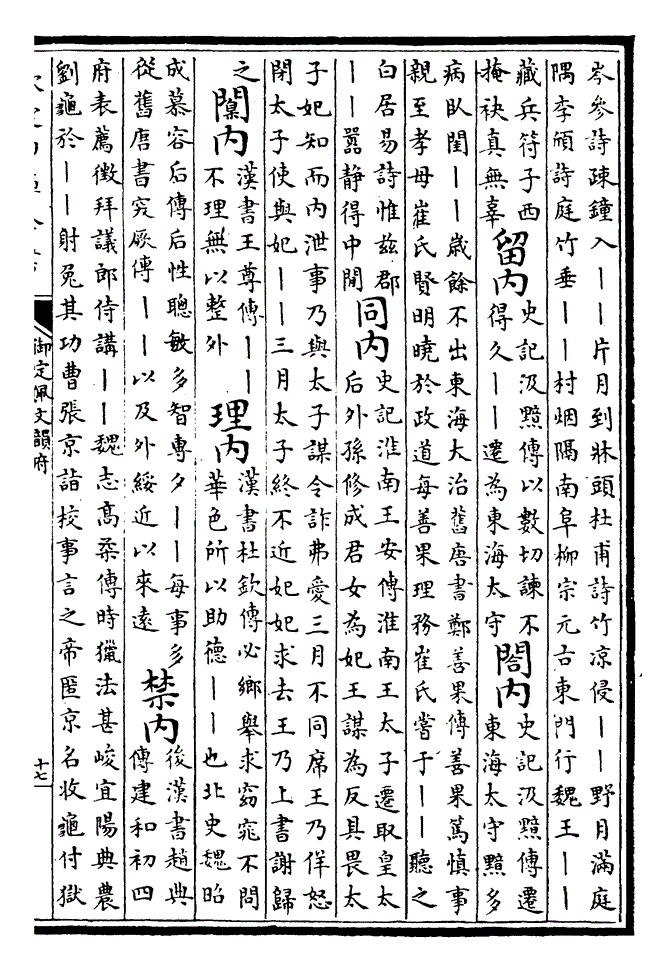 岑參詩疎鐘入丨丨片月到牀頭杜甫詩竹凉侵丨丨野月滿庭
隅李頎詩庭竹垂丨丨村烟隔南阜柳宗元古東門行魏王丨丨
藏兵符子西
掩袂真無辜
留内
史記汲黯傳以數切諫不
得久丨丨遷為東海太守
閤内
史記汲黯傳遷
東海太守黯多
病臥閨丨丨歲餘不出東海大治舊唐書鄭善果傳善果篤慎事
親至孝母崔氏賢明曉於政道每善果理務崔氏嘗于丨丨聽之
白居易詩惟兹郡
丨丨囂静得中閒
同内
史記淮南王安傳淮南王太子遷取皇太
后外孫修成君女為妃王謀為反具畏太
子妃知而内泄事乃與太子謀令詐弗愛三月不同席王乃佯怒
閉太子使與妃丨丨三月太子終不近妃妃求去王乃上書謝歸
之
闑内
漢書王尊傳丨丨
不理無以整外
理内
漢書杜欽傳必鄉舉求窈窕不問
華色所以助德丨丨也北史魏昭
成慕容后傳后性聰敏多智專夕丨丨每事多
從舊唐書突厥傳丨丨以及外綏近以來遠
禁内
後漢書趙典
傳建和初四
府表薦徵拜議郎侍講丨丨魏志高柔傳時獵法甚峻宜陽典農
劉龜於丨丨射兔其功曹張京詣校事言之帝匿京名收龜付獄
御定佩文韻府
十七